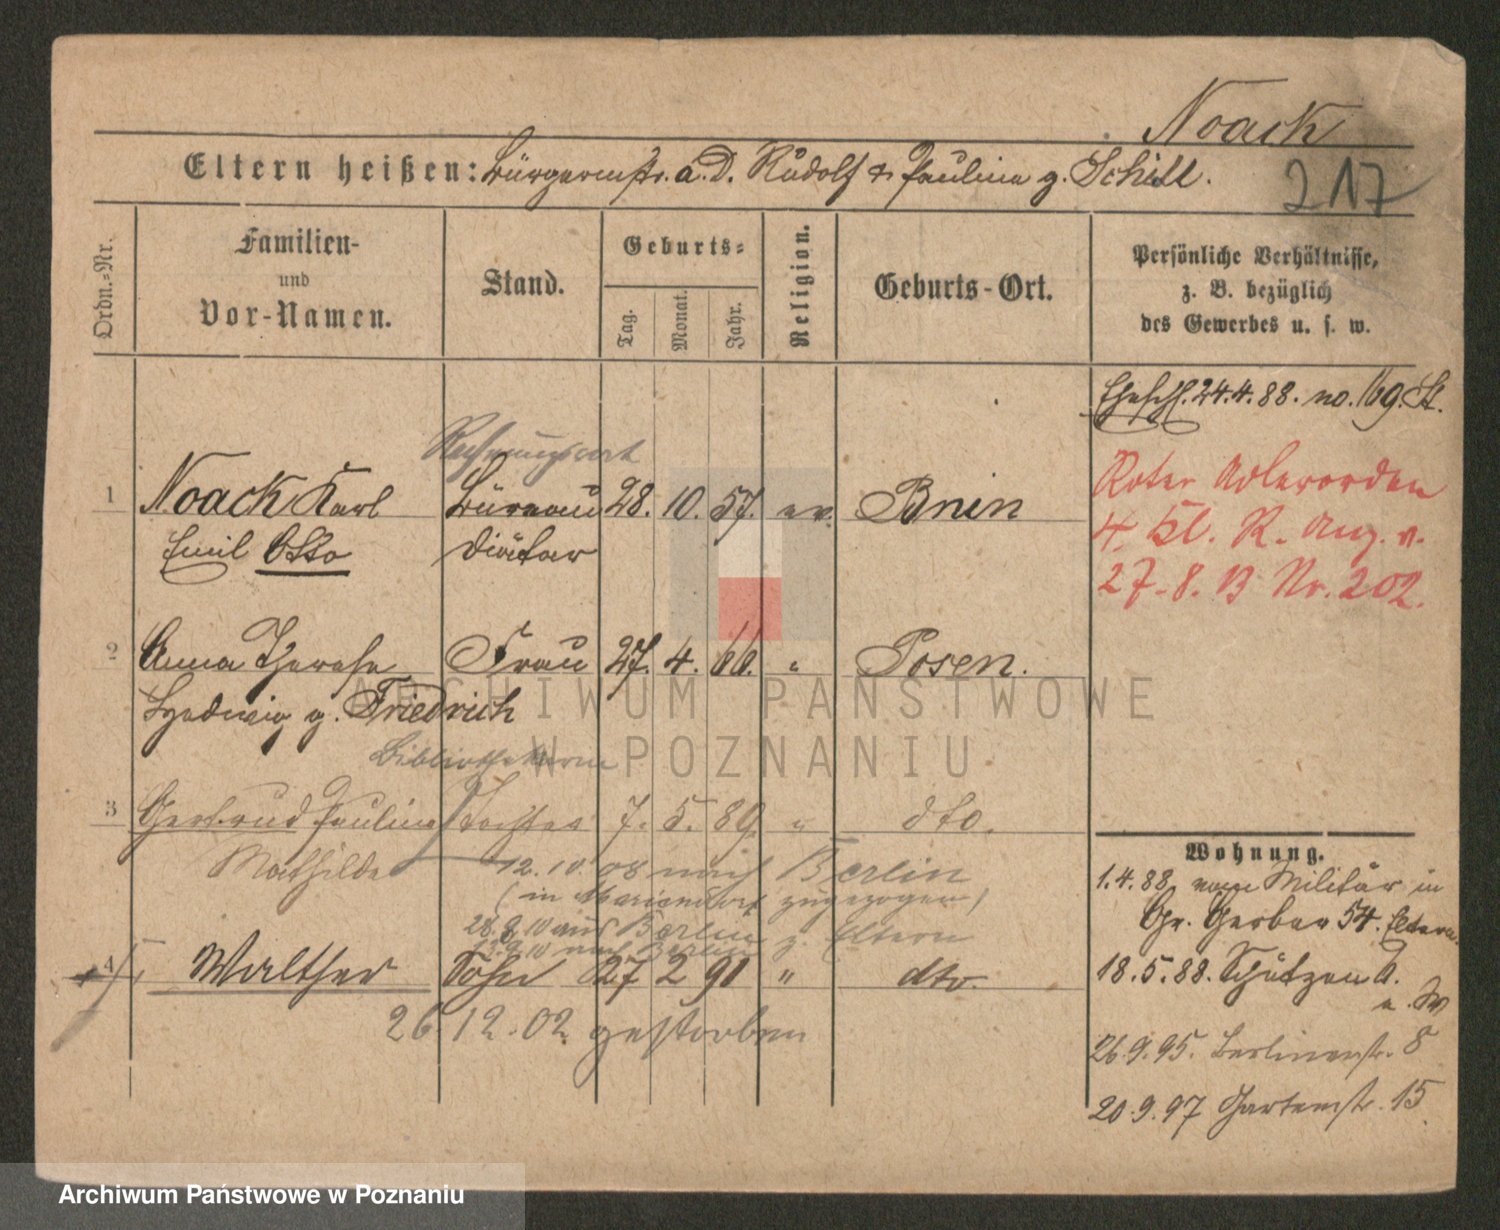 Noack
Eltern heißen: Bürgermstr. a. D. Rudolf & Pauline g. Schill.
217
Ordn.-Nr.
Familien-
und
Vor-Namen.
Stand.
Geburts-
Tag.
Monat.
Jahr.
Religion.
Geburts-Ort.
Persönliche Verhältnisse,
z. B. bezüglich
des Gewerbes u. s. w.
Eheschl. 24.4.88. no. 169. St.
Rechnungsrat
1 Noack Karl Bureau 28. 10. 57. ev. Bnin
Emil Otto Diätar
Roter Adlerorden
4. Kl. R. Anz. v.
27.8.13 Nr. 202.
2 Anna Therese Frau 27. 4. 66. " Posen.
Hedwig g. Friedrich
Bibliothekarin
3 Gertrud Pauline Tochter 7. 5. 89. " dto.
Mathilde 12.10.08 nach Berlin
(in Mariendorf zugezogen)
28.8.10 aus Berlin z. Eltern
nach Berlin
4 Walther Sohn 27 2 91 " dto.
26.12.02 gestorben
Wohnung.
1.4.88 vom Militär in
Gr. Gerber 54. Eltern.
18.5.88. Schützen
26.9.95. Berlinerstr. 8
20.9.97 Gartenstr. 15
ARCHIWUM PAŃSTWOWE
W POZNANIU
Archiwum Państwowe w Poznaniu